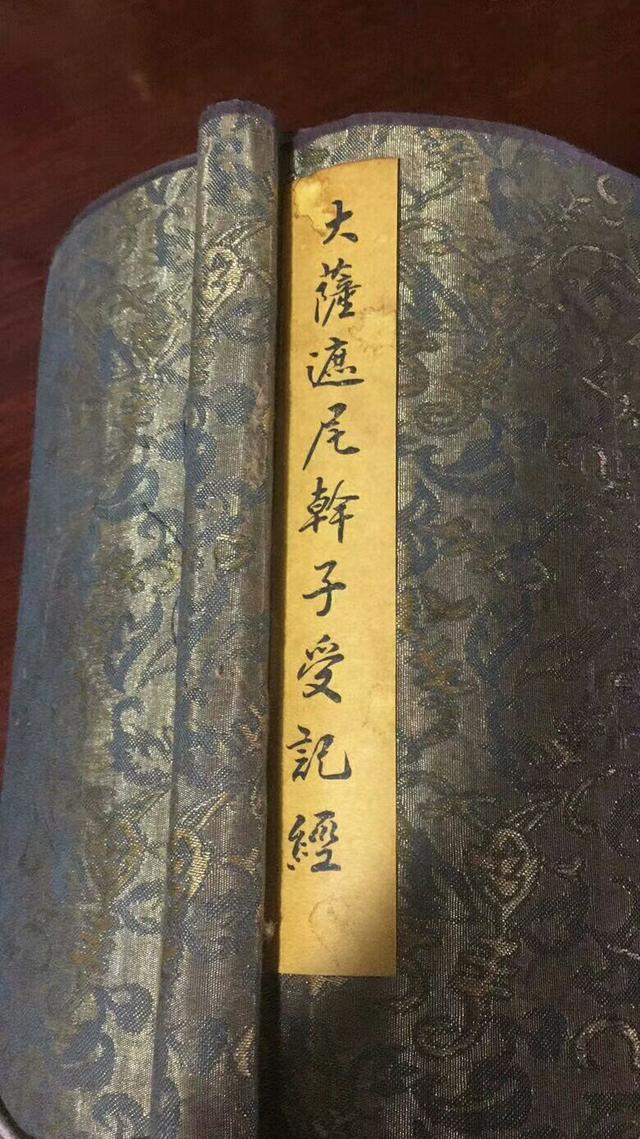 大薩遮尼幹子受記經